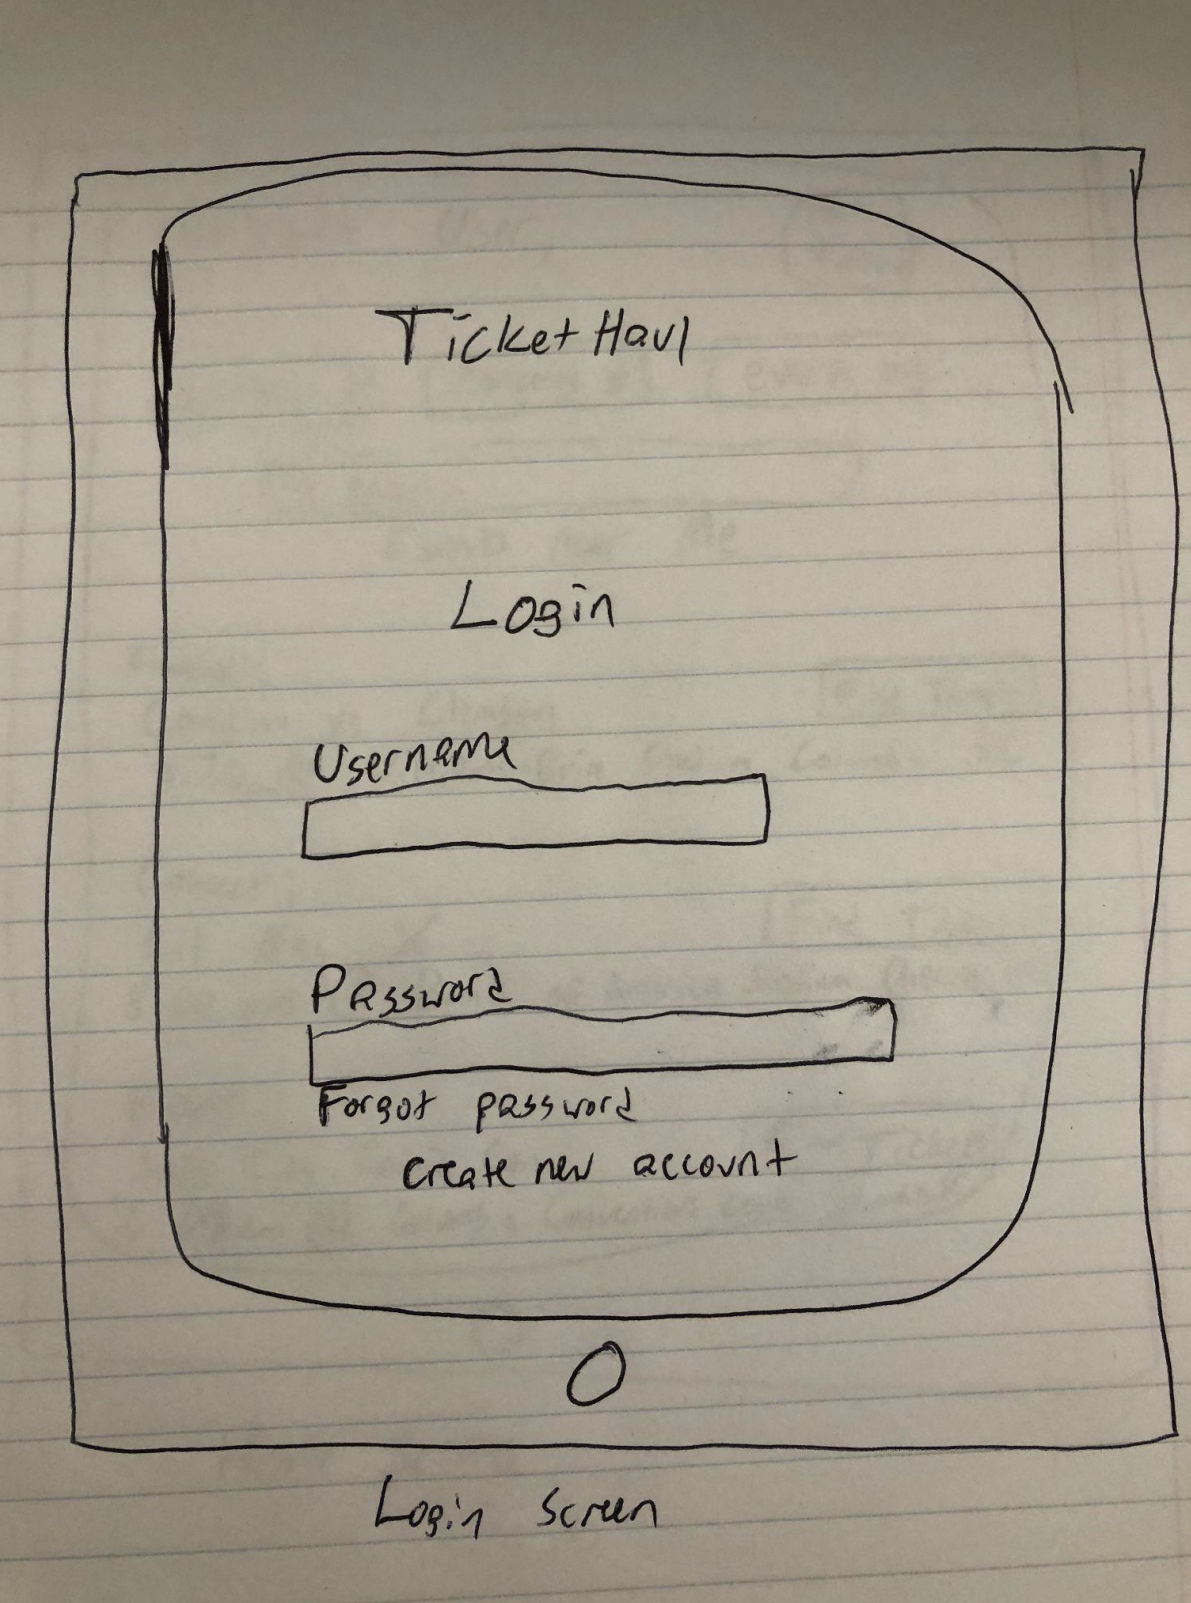 Ticket Haul
Login
Username
Password
Forgot password
create new account
Login screen